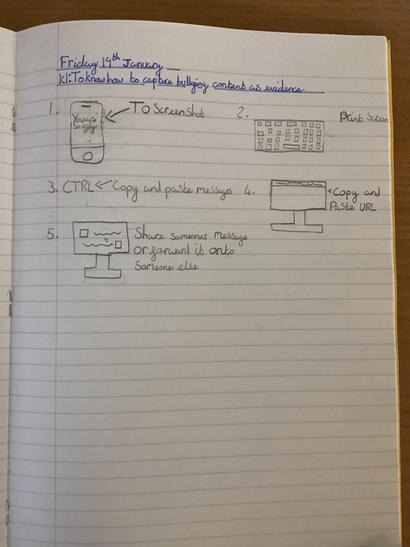 Friday 19th January
KI: To know how to capture bullying content as evidence.
1. To Screen Shot
You are
so ugly
2. Print Screen
3. CTRL Copy and paste messages
4. Copy and
Paste URL
5. Share someones message
or forward it onto
someone else